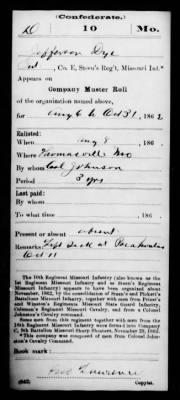 (Confederate.)
D 10 Mo.
Jefferson Dye
Co. E, Steen's Reg't, Missouri Inf.*
Appears on
Company Muster Roll
of the organization named above,
for Aug 6 to Oct 31, 1862
Enlisted:
When Aug 8, 186
Where Thomasville Mo
By whom Johnson
Period 3 yrs
Last paid:
By whom
To what time , 186
Present or absent absent
Remarks: Left sick at Pocahontas
Oct 11
*The 10th Regiment Missouri Infantry (also known as the
1st Regiment Missouri Infantry and as Steen's Regiment
Missouri Infantry) appears to have been organized about
November, 1862, by the consolidation of Steen's and Pickett's
Battalions Missouri Infantry, together with men from Priest's
and Winston's Regiments Missouri State Guard Infantry,
Coleman's Regiment Missouri Cavalry, and from a Colonel
Johnson's Cavalry command.
Some men from this regiment together with men from the
16th Regiment Missouri Infantry were formed into Company
E, 9th Battalion Missouri Sharp Shooters, November 29, 1862.
*This company was composed of men from Colonel Johnson's Cavalry Command.
Book mark:
(642) Copyist.